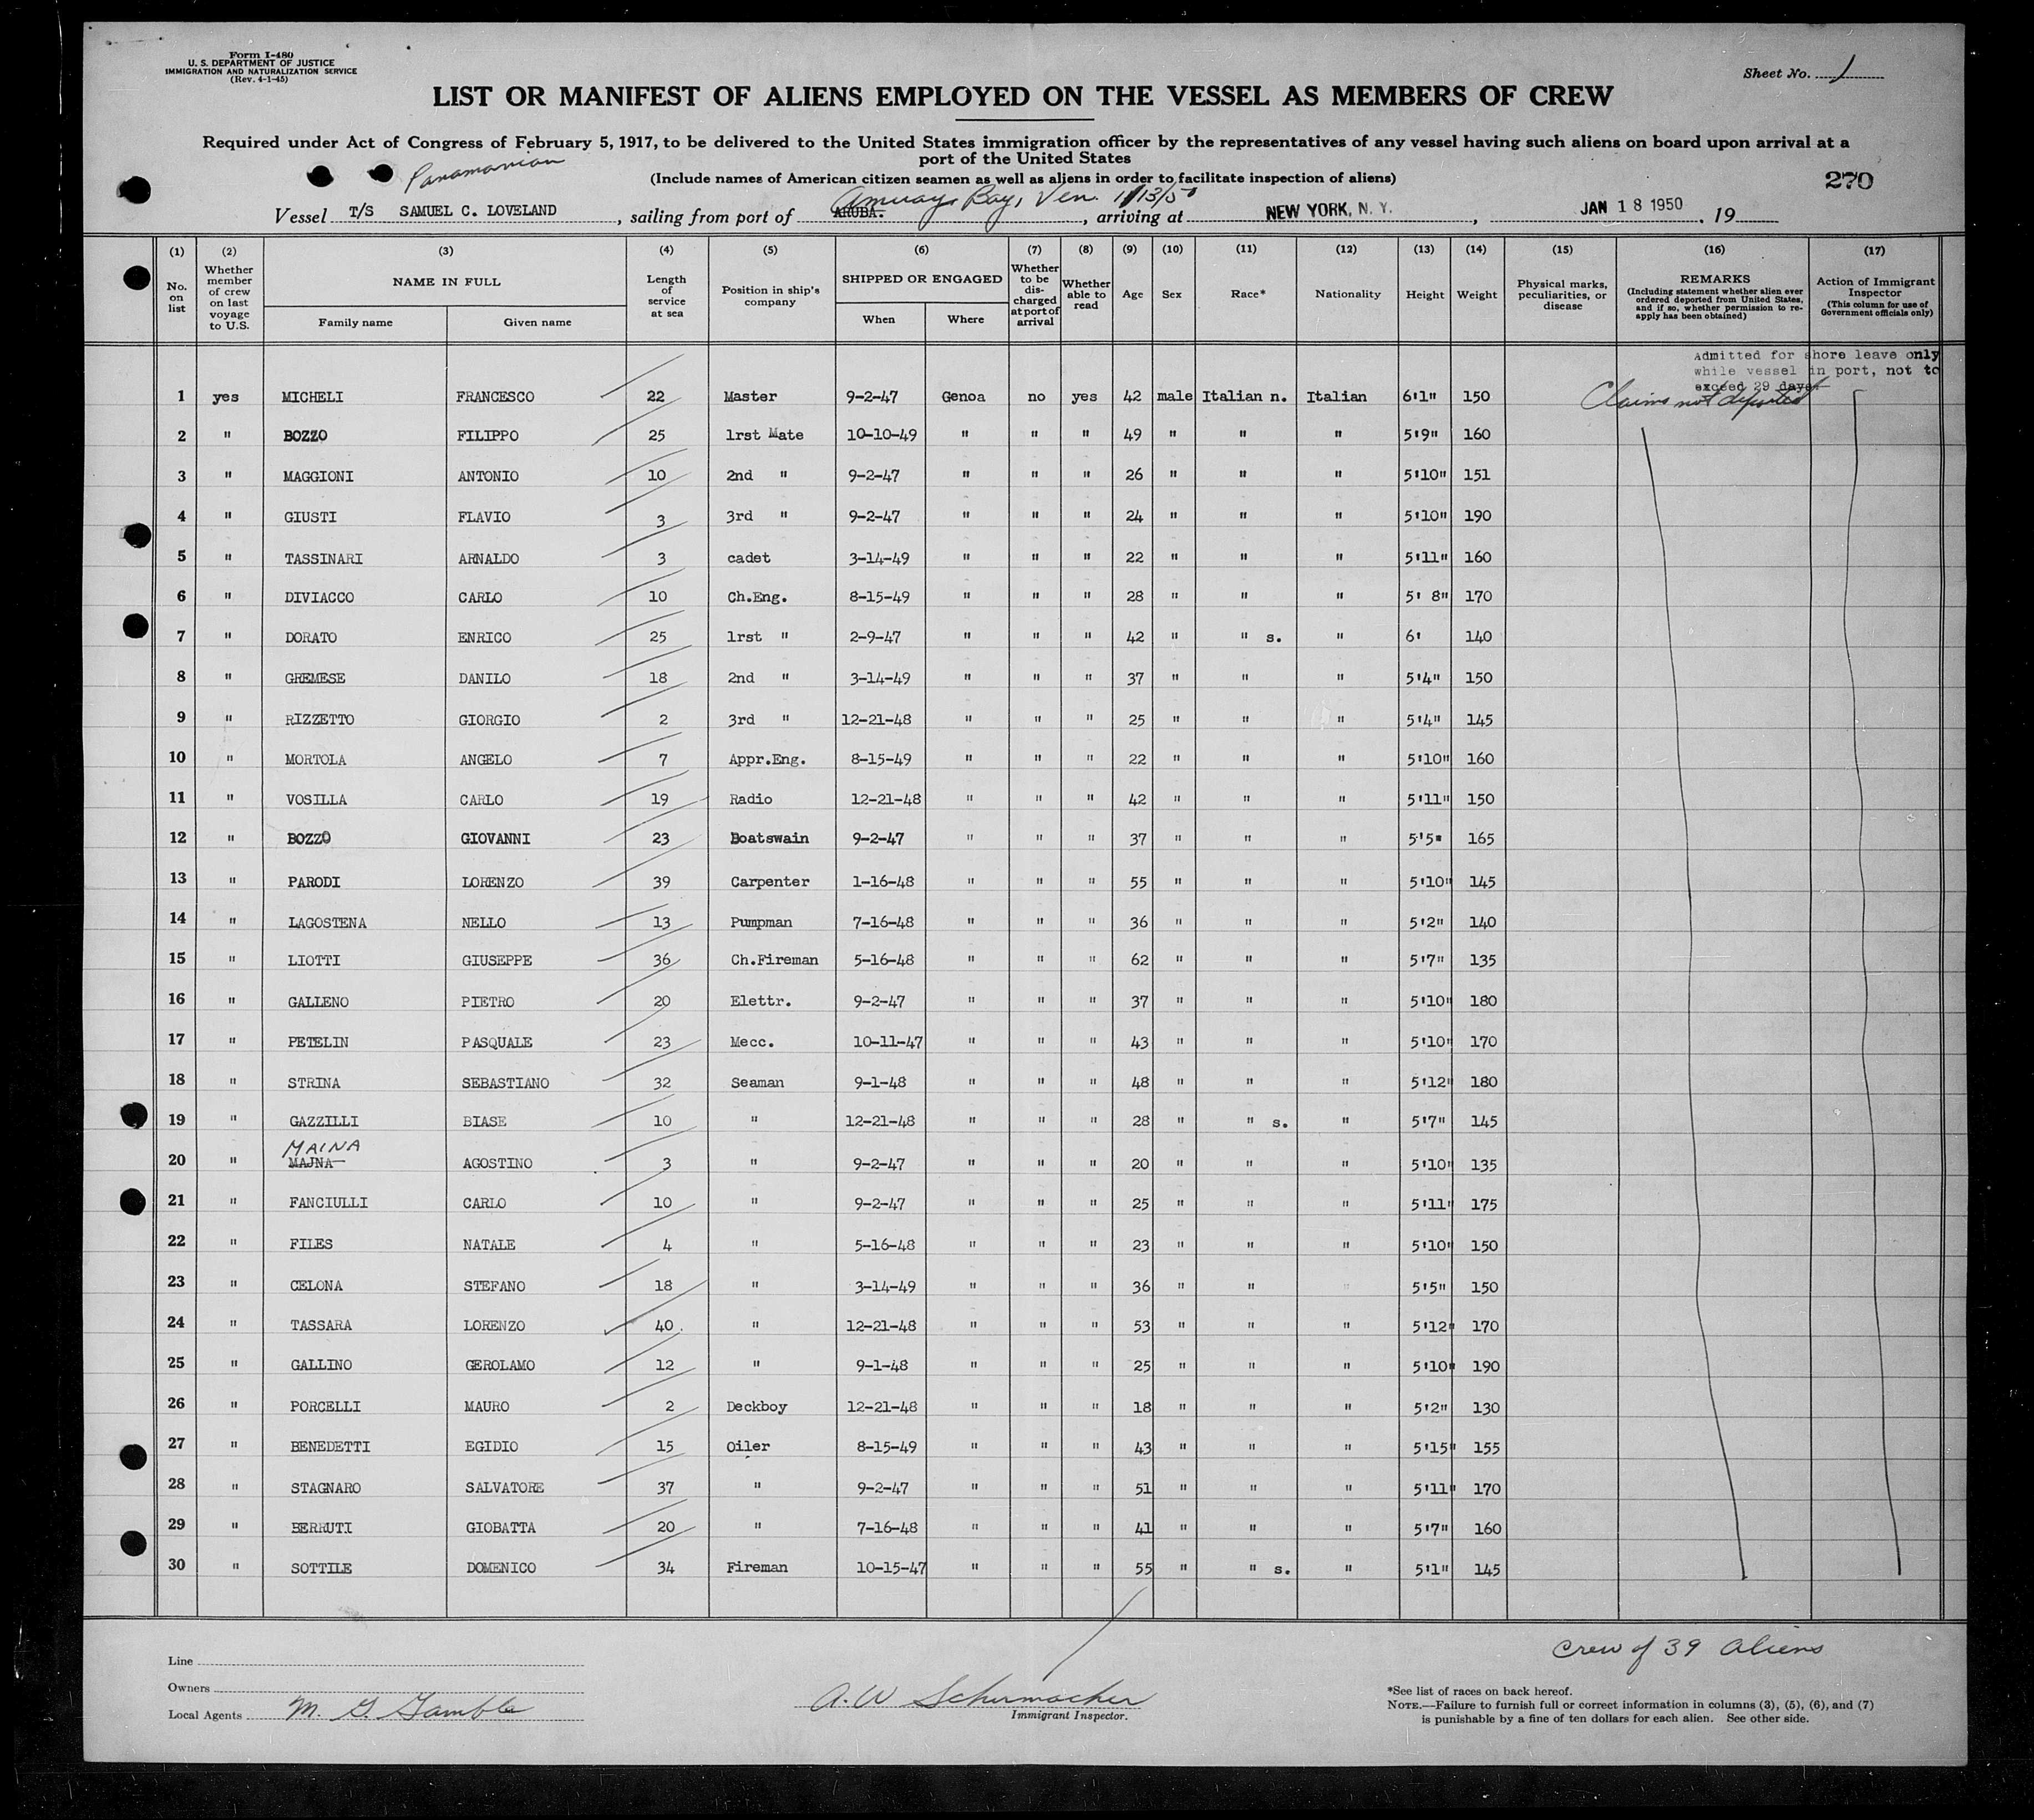 Form I-480
U. S. DEPARTMENT OF JUSTICE
IMMIGRATION AND NATURALIZATION SERVICE
(Rev. 4-1-45)
Sheet No. 1
LIST OR MANIFEST OF ALIENS EMPLOYED ON THE VESSEL AS MEMBERS OF CREW
Required under Act of Congress of February 5, 1917, to be delivered to the United States immigration officer by the representatives of any vessel having such aliens on board upon arrival at a
port of the United States
Panamanian
(Include names of American citizen seamen as well as aliens in order to facilitate inspection of aliens)
270
Amuay Bay, Ven. 1/13/50
Vessel T/S SAMUEL C. LOVELAND, sailing from port of ARUBA., arriving at NEW YORK, N. Y., JAN 18 1950, 19
(1) No. on list
(2) Whether member of crew on last voyage to U.S.
(3) NAME IN FULL Family name Given name
(4) Length of service at sea
(5) Position in ship's company
(6) SHIPPED OR ENGAGED When Where
(7) Whether to be discharged at port of arrival
(8) Whether able to read
(9) Age
(10) Sex
(11) Race*
(12) Nationality
(13) Height
(14) Weight
(15) Physical marks, peculiarities, or disease
(16) REMARKS (Including statement whether alien ever ordered deported from United States, and if so, whether permission to re-apply has been obtained)
(17) Action of Immigrant Inspector (This column for use of Government officials only)
Admitted for shore leave only
while vessel in port, not to
exceed 29 days
Claims not deported
1 yes MICHELI FRANCESCO 22 Master 9-2-47 Genoa no yes 42 male Italian n. Italian 6'1" 150
2 " BOZZO FILIPPO 25 1rst Mate 10-10-49 " " " 49 " " " 5'9" 160
3 " MAGGIONI ANTONIO 10 2nd " 9-2-47 " " " 26 " " " 5'10" 151
4 " GIUSTI FLAVIO 3 3rd " 9-2-47 " " " 24 " " " 5'10" 190
5 " TASSINARI ARNALDO 3 cadet 3-14-49 " " " 22 " " " 5'11" 160
6 " DIVIACCO CARLO 10 Ch.Eng. 8-15-49 " " " 28 " " " 5' 8" 170
7 " DORATO ENRICO 25 1rst " 2-9-47 " " " 42 " " s. " 6' 140
8 " GREMESE DANILO 18 2nd " 3-14-49 " " " 37 " " " 5'4" 150
9 " RIZZETTO GIORGIO 2 3rd " 12-21-48 " " " 25 " " " 5'4" 145
10 " MORTOLA ANGELO 7 Appr.Eng. 8-15-49 " " " 22 " " " 5'10" 160
11 " VOSILLA CARLO 19 Radio 12-21-48 " " " 42 " " " 5'11" 150
12 " BOZZO GIOVANNI 23 Boatswain 9-2-47 " " " 37 " " " 5'5" 165
13 " PARODI LORENZO 39 Carpenter 1-16-48 " " " 55 " " " 5'10" 145
14 " LAGOSTENA NELLO 13 Pumpman 7-16-48 " " " 36 " " " 5'2" 140
15 " LIOTTI GIUSEPPE 36 Ch.Fireman 5-16-48 " " " 62 " " " 5'7" 135
16 " GALLENO PIETRO 20 Elettr. 9-2-47 " " " 37 " " " 5'10" 180
17 " PETELIN PASQUALE 23 Mecc. 10-11-47 " " " 43 " " " 5'10" 170
18 " STRINA SEBASTIANO 32 Seaman 9-1-48 " " " 48 " " " 5'12" 180
19 " GAZZILLI BIASE 10 " 12-21-48 " " " 28 " " s. " 5'7" 145
MAINA
20 " MAJNA AGOSTINO 3 " 9-2-47 " " " 20 " " " 5'10" 135
21 " FANCIULLI CARLO 10 " 9-2-47 " " " 25 " " " 5'11" 175
22 " FILES NATALE 4 " 5-16-48 " " " 23 " " " 5'10" 150
23 " CELONA STEFANO 18 " 3-14-49 " " " 36 " " " 5'5" 150
24 " TASSARA LORENZO 40. " 12-21-48 " " " 53 " " " 5'12" 170
25 " GALLINO GEROLAMO 12 " 9-1-48 " " " 25 " " " 5'10" 190
26 " PORCELLI MAURO 2 Deckboy 12-21-48 " " " 18 " " " 5'2" 130
27 " BENEDETTI EGIDIO 15 Oiler 8-15-49 " " " 43 " " " 5'15" 155
28 " STAGNARO SALVATORE 37 " 9-2-47 " " " 51 " " " 5'11" 170
29 " BERRUTI GIOBATTA 20 " 7-16-48 " " " 41 " " " 5'7" 160
30 " SOTTILE DOMENICO 34 Fireman 10-15-47 " " " 55 " " s. " 5'1" 145
crew of 39 aliens
Line
Owners
Local Agents M. G. Gamble
A. W Schumacher
Immigrant Inspector.
*See list of races on back hereof.
NOTE.—Failure to furnish full or correct information in columns (3), (5), (6), and (7)
is punishable by a fine of ten dollars for each alien. See other side.